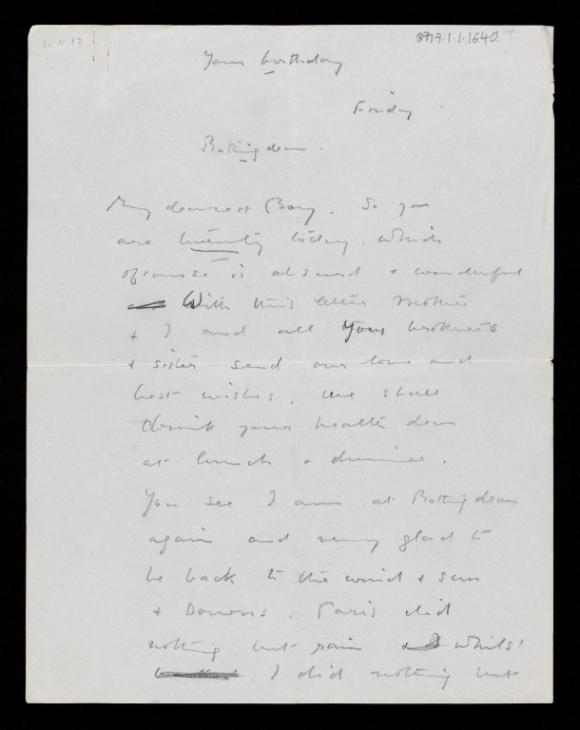 8717.1.1.1640
Your birthday
Friday.
Rottingdean.
My dearest Boy. So you
are twenty today, which
of course is absurd & wonderful
With this letter Mother
& I and all your brothers
& sister send our love and
best wishes, we shall
drink your health dear
at lunch & dinner.
You see I am at Rottingdean
again and very glad to
be back to the wind & sun
& Downs. Paris did
nothing but rain & whilst
I did nothing but